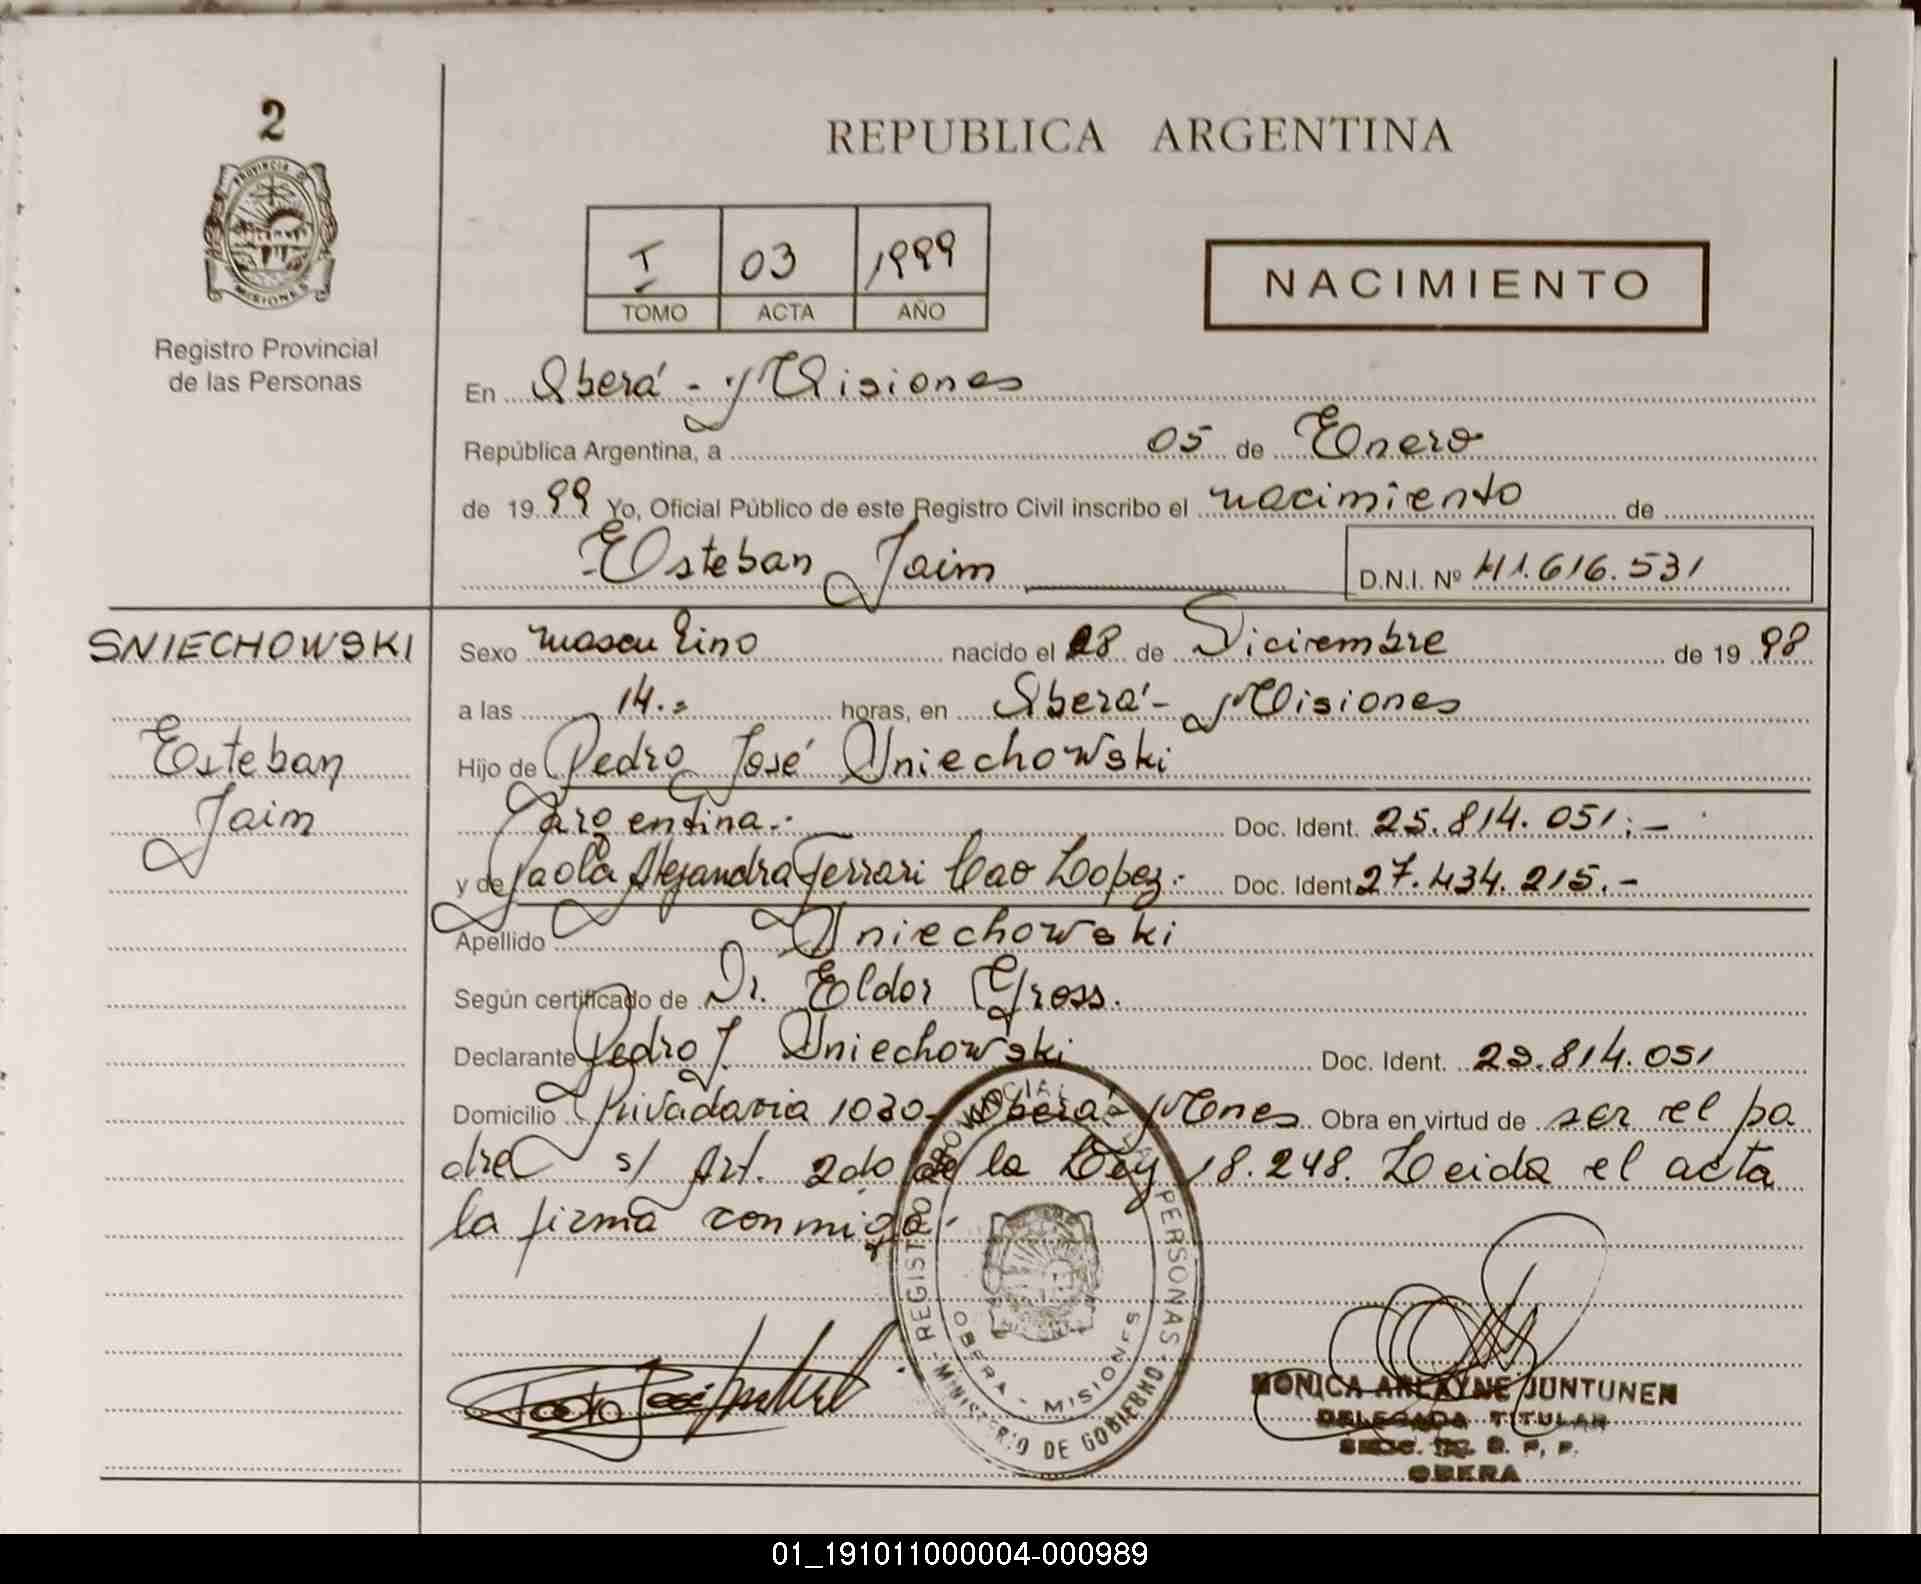 2
REPUBLICA ARGENTINA
PROVINCIA D
MISIONES
I 03 1999
TOMO ACTA AÑO
NACIMIENTO
Registro Provincial
de las Personas
En Oberá - Misiones
República Argentina, a 05 de Enero
de 1999 Yo, Oficial Público de este Registro Civil inscribo el nacimiento de
Esteban Jaim D.N.I. Nº 41.616.531
SNIECHOWSKI
Esteban
Jaim
Sexo masculino nacido el 28 de Diciembre de 1998
a las 14.= horas, en Oberá - Misiones
Hijo de Pedro José Sniechowski
argentina.- Doc. Ident. 25.814.051.-
y de Paola Alejandra Ferrari Cao Lopez.- Doc. Ident 27.434.215.-
Apellido Sniechowski
Según certificado de Dr. Eldor Gross.
Declarante Pedro J. Sniechowski Doc. Ident. 25.814.051
Domicilio Rivadavia 1030- Oberá- Mones Obra en virtud de ser el pa
dre s/ Art. 2do de la Ley 18.248. Leida el acta
la firma conmigo.-
REGISTRO PROVINCIAL PERSONAS
OBERA - MISIONES
MINISTERIO DE GOBIERNO
MONICA ARLAYNE JUNTUNEN
DELEGADA TITULAR
OBERA
01_191011000004-000989